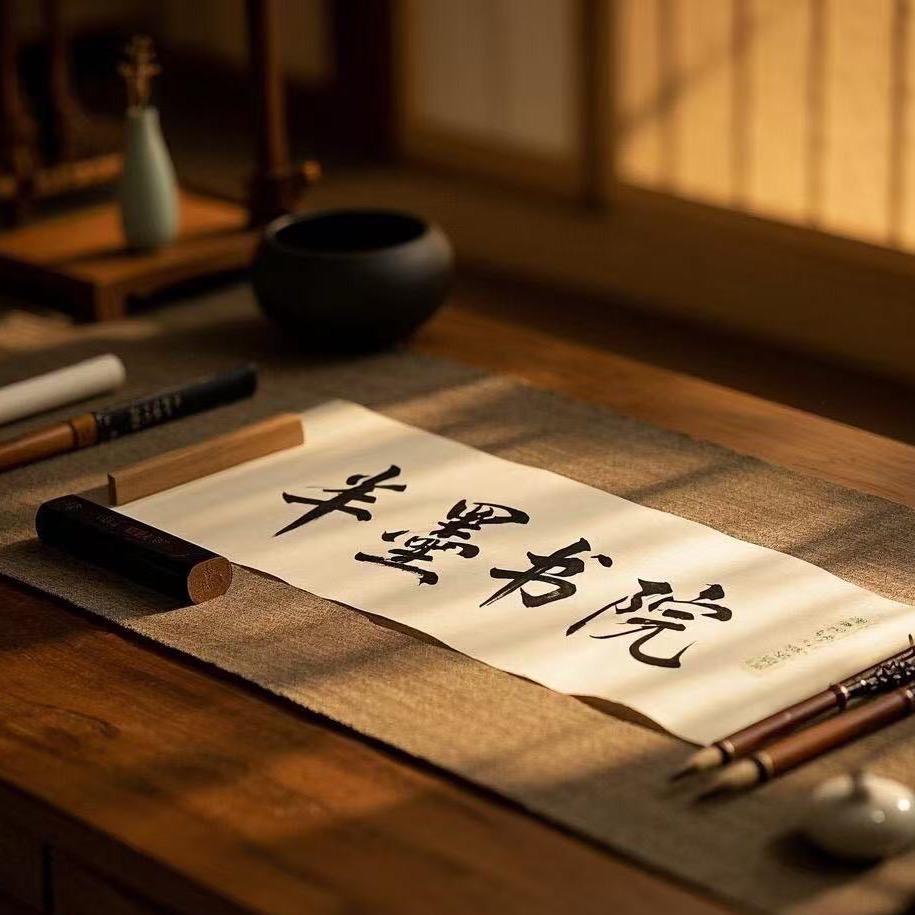 半墨书院